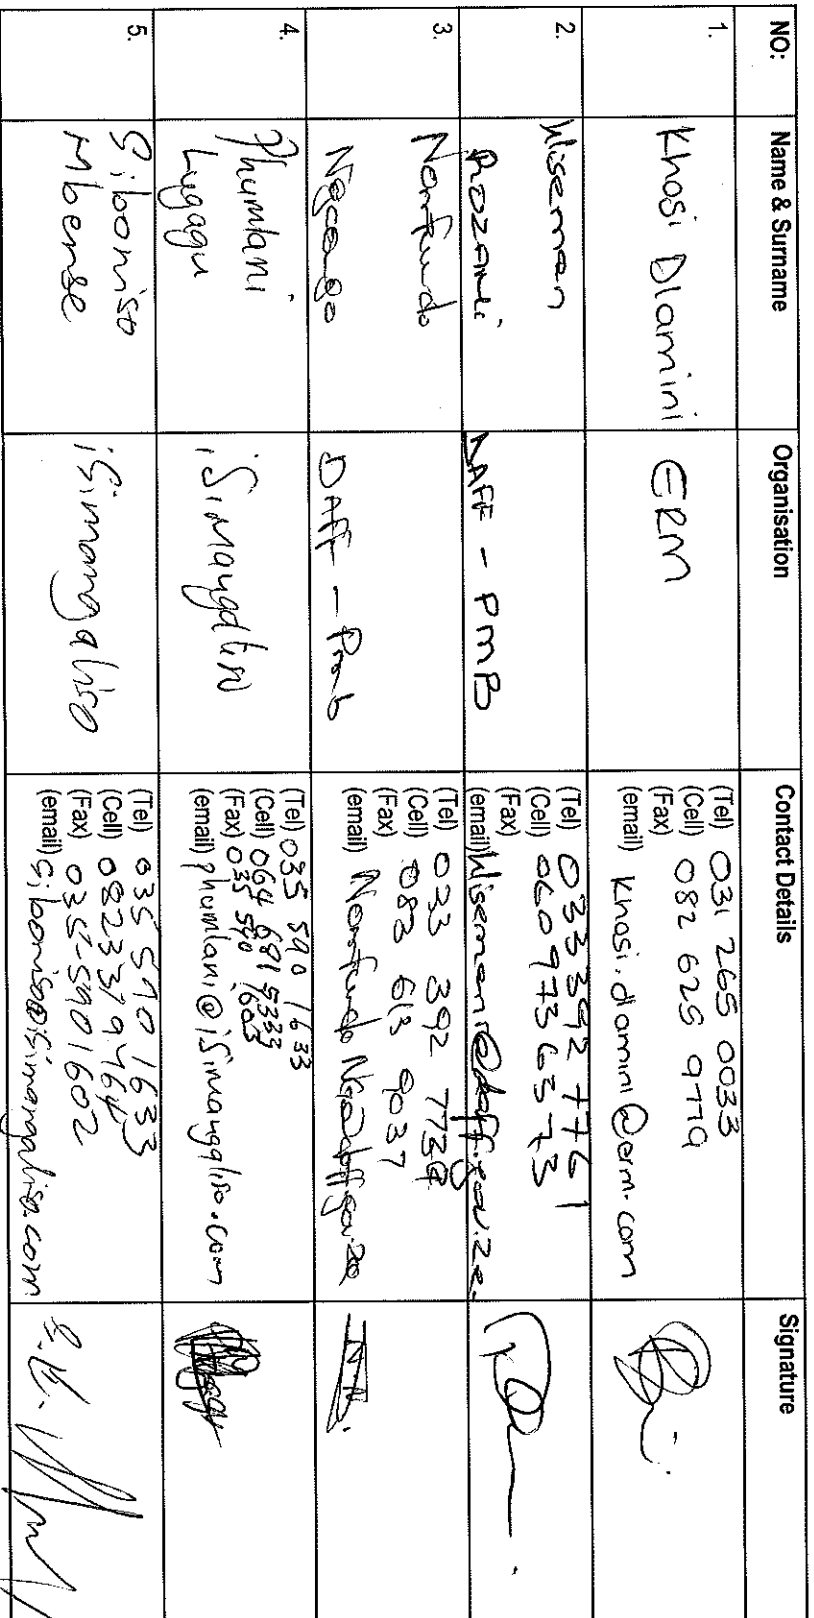 NO: Name & Surname Organisation Contact Details Signature
1. Khosi Dlamini ERM
(Tel) 031 265 0033
(Cell) 082 625 9779
(Fax)
(email) khosi.dlamini@erm.com
2. Wiseman
Rozani
DAFF - PMB
(Tel) 033 392 7761
(Cell) 060 973 6573
(Fax)
(email) Wisemanr@daff.gov.za.
3. Nomfundo
Ngcongo
DAFF - Pmb
(Tel) 033 392 7739
(Cell) 083 613 9037
(Fax)
(email) NomfundoN@daff.gov.za
4. Phumlani
Lugagu
iSimangaliso
(Tel) 035 590 1633
(Cell) 064 681 5333
(Fax) 035 590 1603
(email) phumlani@iSimangaliso.com
5. Siboniso
Mbense
iSimangaliso
(Tel) 035 590 1633
(Cell) 082 337 9464
(Fax) 035-590 1602
(email) Siboniso@isimangaliso.com